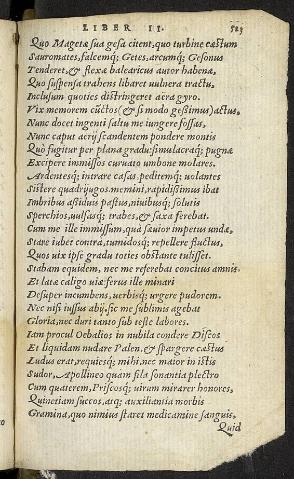 LIBER II. 523
Quo Magetæ sua gesa citent, quo turbine cæstum
Sauromates, falcemq; Getes, arcumq; Gelonus
Tenderet, & flexæ balearicus autor habenæ,
Quo suspensa trahens libaret uulnera tractu,
Inclusum quoties distringeret aëra gyro.
Vix memorem cūctos (et si modo gessimus) actus,
Nunc docet ingenti saltu me iungere fossas,
Nunc caput aerij scandentem pondere montis
Quò fugitur per plana gradu: simulacraq; pugnæ
Excipere immissos curuato umbone molares.
Ardentesq; intrare casas, peditemq; uolantes
Sistere quadrijugos. memini, rapidissimus ibat
Imbribus assiduis pastus, niuibusq; solutis
Sperchios, uulsasq; trabes, & saxa ferebat.
Cum me ille immissum, qua sæuior impetus undæ,
Stare iubet contra, tumidosq; repellere fluctus,
Quos uix ipse gradu toties obstante tulisset.
Stabam equidem, nec me referebat concitus amnis
Et latæ caligo uiæ ferus ille minari
Desuper incumbens, uerbisq; urgere pudorem.
Nec nisi iussus abij, sic me sublimis agebat
Gloria, nec duri tanto sub teste labores.
Iam procul Oebalios in nubila condere Discos
Et liquidam nudare Palen, & spargere cæstus
Ludus erat, requiesq; mihi, nec maior in istis
Sudor, Apollineo quam fila sonantia plectro
Cum quaterem, Priscosq; uirum mirarer honores,
Quinetiam succos, atq; auxiliantia morbis
Gramina, quo nimius staret medicamine sanguis,
Quid